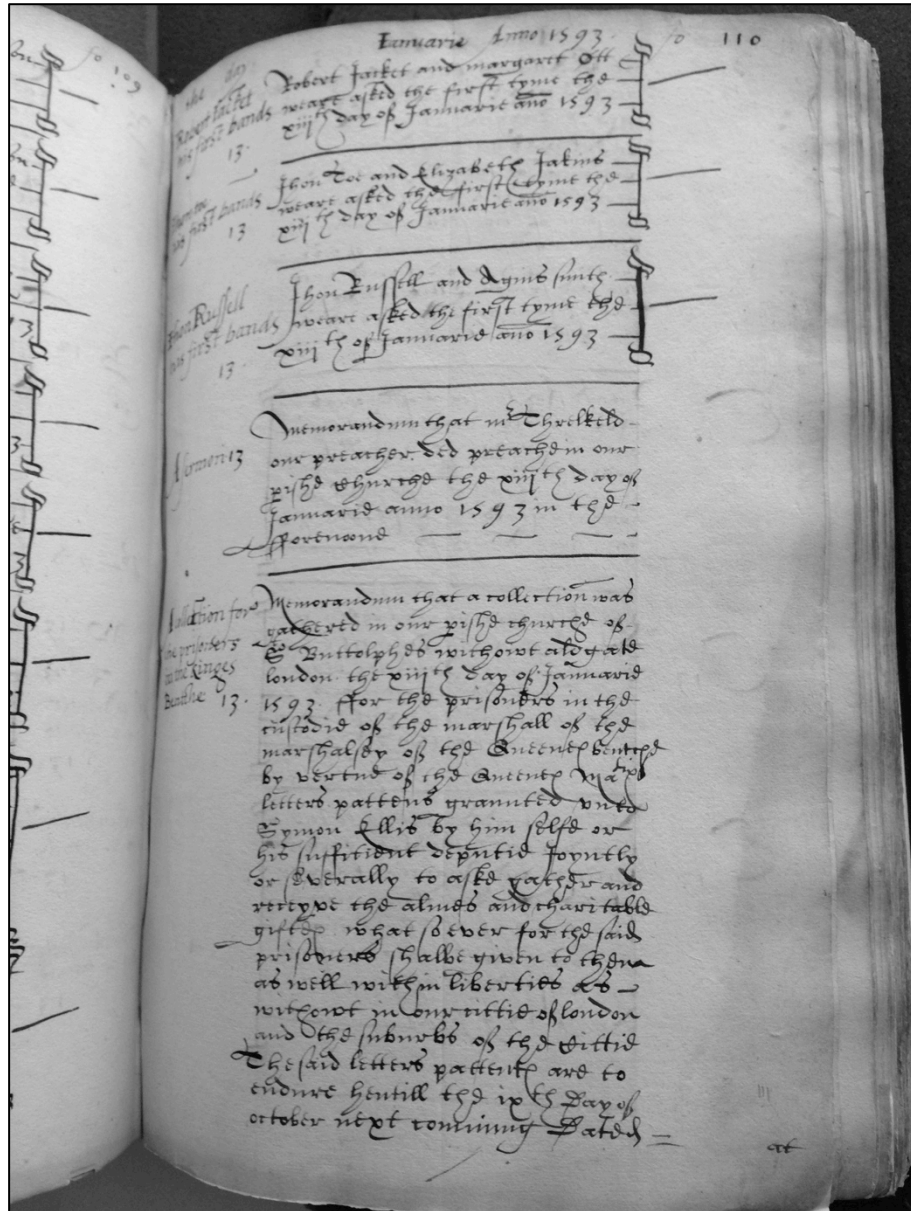 fo 109
Ianuarie Anno 1593
fo 110
the day
Robert Jacket
his first bands
13
Robert Jacket and margaret Ott
weare asked the first tyme the
xiijth day of Januarie ano 1593
his first bands
13
Jhon Toe and Elizabeth Jakins
weare asked the first tyme the
xiijth day of Januarie ano 1593
Jhon Russell
his first bands
13
Jhon Russell and Agnis smith
weare asked the first tyme the
xiijth of Januarie ano 1593
A sermon 13
Memorandum that mr Threlkeld
our preacher ded preache in our
pishe Churche the xiijth day of
Januarie anno 1593 in the
fforenoone
Collection for
the prisoners
in the kinges
Benche 13
Memorandum that a collection was
gathered in our pishe churche of
S Buttolphes withowt aldgate
london the xiijth day of Januarie
1593 ffor the prisoners in the
custodie of the marshall of the
marshalsey of the Queenes bentche
by vertue of the Queenes Maties
letters pattens graunted unto
Symon Ellis by him selfe or
his suffitient deputie Joyntly
or severally to aske gather and
receyve the almes and charitable
giftes what so ever for the said
prisoners shalbe given to them
as well within liberties as
withowt in our cittie of london
and the suburbs of the Cittie
The said letters pattents are to
endure hentill the ixth Day of
october next comming Dated
at